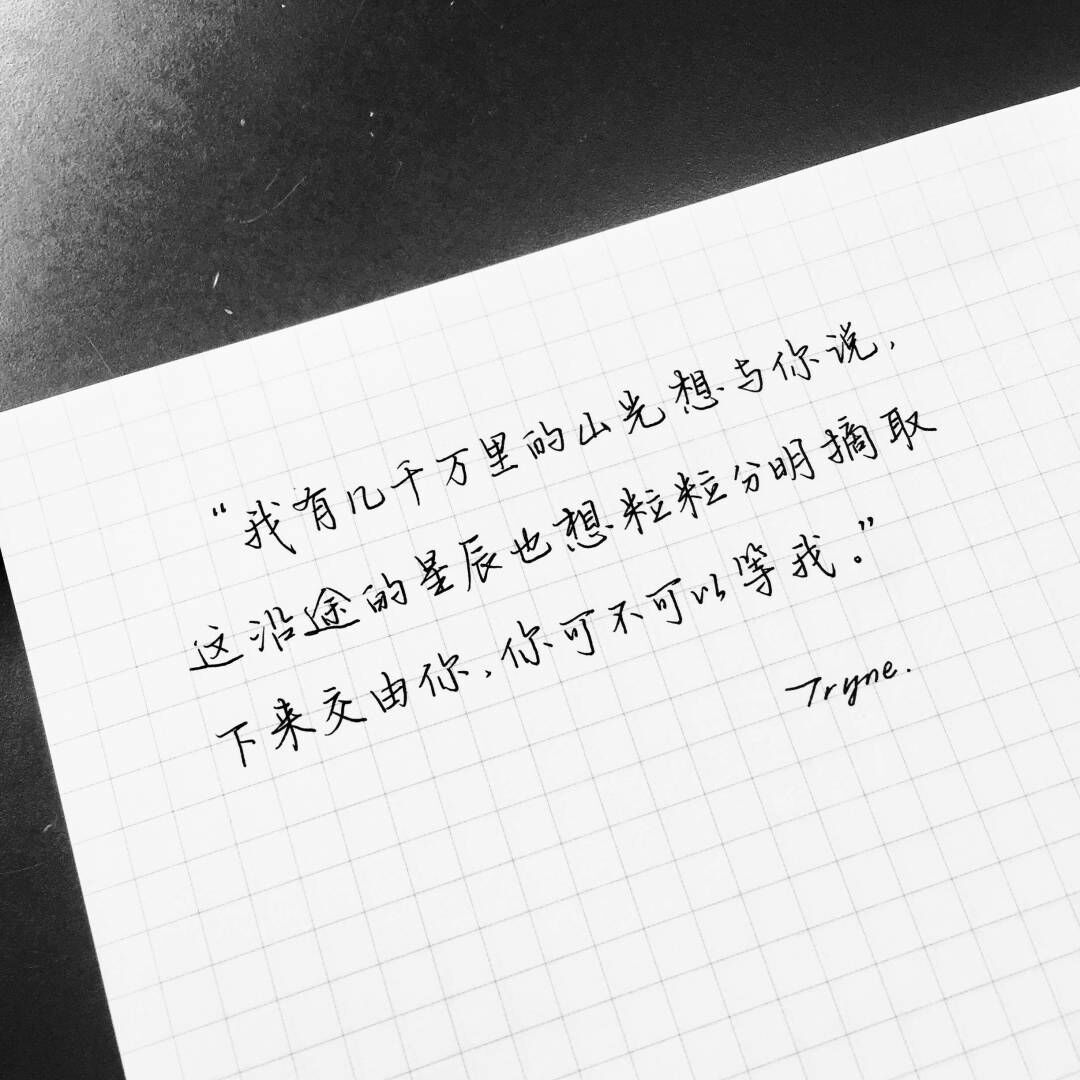 “我有几千万里的山光想与你说,
这沿途的星辰也想粒粒分明摘取
下来交由你,你可不可以等我。”
Tryne.